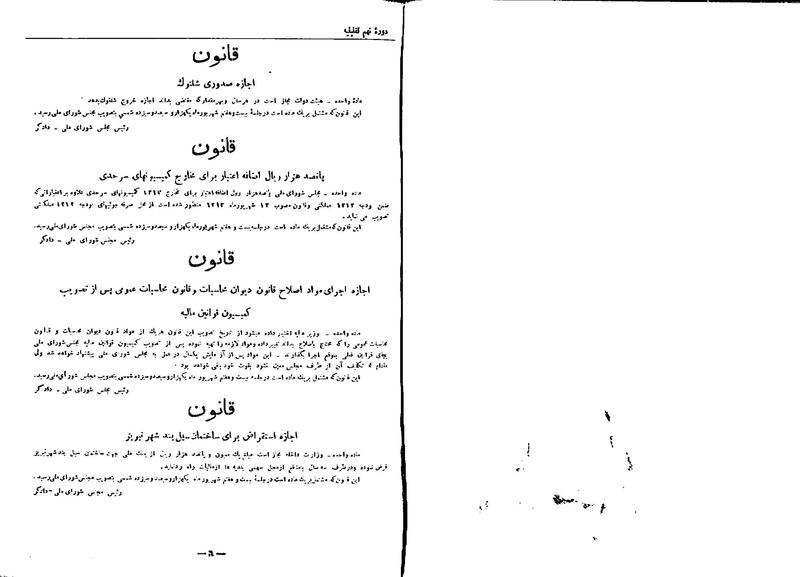 دورهٔ نهم تقنینیه
قانون
اجازه صدوری شلتوك
مادهٔ واحده - هیئت دولت مجاز است در هر سال و بهر مقدار که مقتضی بداند اجازه خروج شلتوك بدهد
این قانون که مشتمل بر یك ماده است در جلسهٔ بیست و هفتم شهریور ماه یکهزار و سیصد و سیزده شمسی بتصویب مجلس شورای ملی رسید.
رئیس مجلس شورای ملی - دادگر
قانون
پانصد هزار ریال اضافه اعتبار برای مخارج کمیسیونهای سرحدی
ماده واحده - مجلس شورای ملی پانصد هزار ریال اضافه اعتبار برای مخارج ۱۳۱۳ کمیسیونهای سرحدی علاوه بر اعتباراتی که
ضمن بودجه ۱۳۱۳ مملکتی و قانون مصوب ۱۳ شهریور ماه ۱۳۱۳ منظور شده است از محل صرفه جوئیهای بودجه ۱۳۱۲ مملکتی
تصویب می نماید.
این قانون که مشتمل بر یك ماده است در جلسه بیست و هفتم شهریور ماه یکهزار و سیصد و سیزده شمسی بتصویب مجلس شورای ملی رسید.
رئیس مجلس شورای ملی - دادگر
قانون
اجازه اجرای مواد اصلاح قانون دیوان محاسبات و قانون محاسبات عمومی پس از تصویب
کمیسیون قوانین مالیه
ماده واحده - وزیر مالیه اختیار داده میشود از تاریخ تصویب این قانون هر یك از مواد قانون دیوان محاسبات و قانون
محاسبات عمومی را که محتاج باصلاح بداند تغییر داده و مواد لازمه را تهیه نموده پس از تصویب کمیسیون قوانین مالیه مجلس شورای ملی
بجای قوانین فعلی بموقع اجرا بگذارند - این مواد پس از آزمایش یکسال در عمل به مجلس شورای ملی پیشنهاد خواهد شد ولی
مادام که تکلیف آن از طرف مجلس معین نشود بقوت خود باقی خواهد بود
این قانون که مشتمل بر یك ماده است در جلسه بیست و هفتم شهریور ماه یکهزار و سیصد و سیزده شمسی بتصویب مجلس شورای ملی رسید.
رئیس مجلس شورای ملی - دادگر
قانون
اجازه استقراض برای ساختمان سیل بند شهر تبریز
ماده واحده - وزارت داخله مجاز است مبلغ یك میلیون و پانصد هزار ریال از بانك ملی جهت ساختمان سیل بند شهر تبریز
قرض نموده و در ظرف سه سال باستقرار از محل سهمی بلدیه ها از مالیات راه رد نماید.
این قانون که مشتمل بر یك ماده است در جلسهٔ بیست و هفتم شهریور ماه یکهزار و سیصد و سیزده شمسی بتصویب مجلس شورای ملی رسید.
رئیس مجلس شورای ملی - دادگر